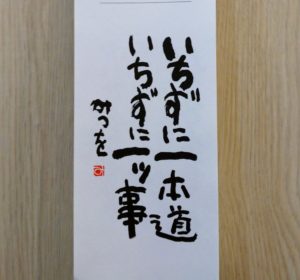 いちずに一本道
いちずに一ッ事
みつを